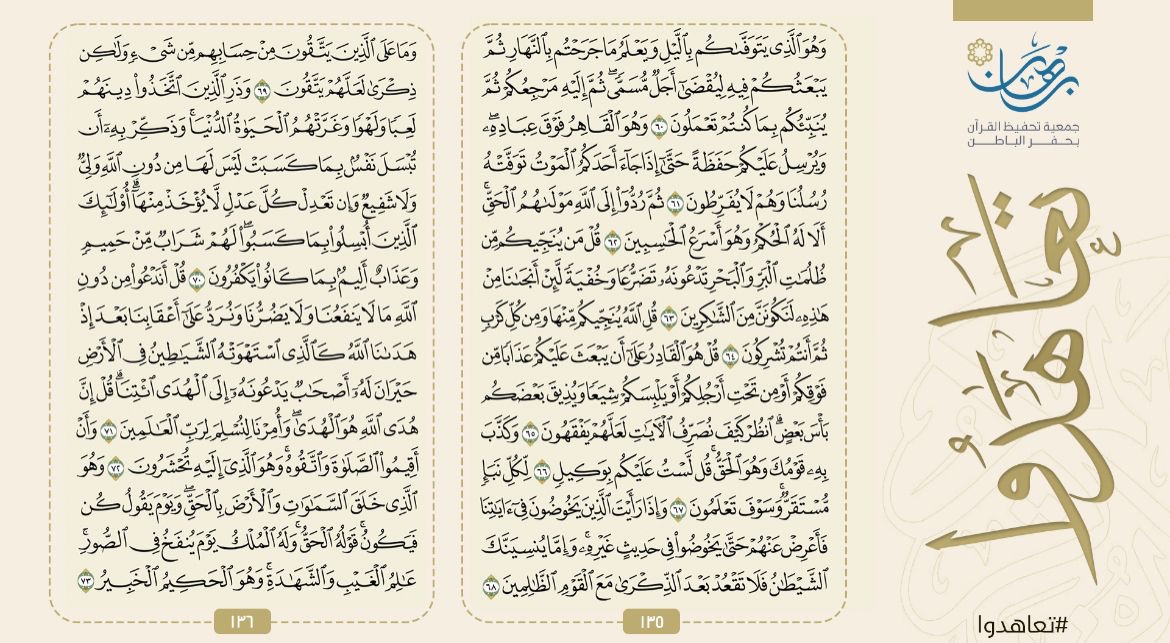 برهان
جمعية تحفيظ القرآن
بحفر الباطن
تعاهدوا
#تعاهدوا
وَهُوَ ٱلَّذِى يَتَوَفَّىٰكُم بِٱلَّيْلِ وَيَعْلَمُ مَا جَرَحْتُم بِٱلنَّهَارِ ثُمَّ
يَبْعَثُكُمْ فِيهِ لِيُقْضَىٰٓ أَجَلٌ مُّسَمًّى ۖ ثُمَّ إِلَيْهِ مَرْجِعُكُمْ ثُمَّ
يُنَبِّئُكُم بِمَا كُنتُمْ تَعْمَلُونَ ٦٠ وَهُوَ ٱلْقَاهِرُ فَوْقَ عِبَادِهِۦ ۖ
وَيُرْسِلُ عَلَيْكُمْ حَفَظَةً حَتَّىٰٓ إِذَا جَآءَ أَحَدَكُمُ ٱلْمَوْتُ تَوَفَّتْهُ
رُسُلُنَا وَهُمْ لَا يُفَرِّطُونَ ٦١ ثُمَّ رُدُّوٓا۟ إِلَى ٱللَّهِ مَوْلَىٰهُمُ ٱلْحَقِّ ۚ
أَلَا لَهُ ٱلْحُكْمُ وَهُوَ أَسْرَعُ ٱلْحَـٰسِبِينَ ٦٢ قُلْ مَن يُنَجِّيكُم مِّن
ظُلُمَـٰتِ ٱلْبَرِّ وَٱلْبَحْرِ تَدْعُونَهُۥ تَضَرُّعًا وَخُفْيَةً لَّئِنْ أَنجَىٰنَا مِنْ
هَـٰذِهِۦ لَنَكُونَنَّ مِنَ ٱلشَّـٰكِرِينَ ٦٣ قُلِ ٱللَّهُ يُنَجِّيكُم مِّنْهَا وَمِن كُلِّ كَرْبٍ
ثُمَّ أَنتُمْ تُشْرِكُونَ ٦٤ قُلْ هُوَ ٱلْقَادِرُ عَلَىٰٓ أَن يَبْعَثَ عَلَيْكُمْ عَذَابًا مِّن
فَوْقِكُمْ أَوْ مِن تَحْتِ أَرْجُلِكُمْ أَوْ يَلْبِسَكُمْ شِيَعًا وَيُذِيقَ بَعْضَكُم
بَأْسَ بَعْضٍ ۗ ٱنظُرْ كَيْفَ نُصَرِّفُ ٱلْـَٔايَـٰتِ لَعَلَّهُمْ يَفْقَهُونَ ٦٥ وَكَذَّبَ
بِهِۦ قَوْمُكَ وَهُوَ ٱلْحَقُّ ۚ قُل لَّسْتُ عَلَيْكُم بِوَكِيلٍ ٦٦ لِّكُلِّ نَبَإٍ
مُّسْتَقَرٌّ ۚ وَسَوْفَ تَعْلَمُونَ ٦٧ وَإِذَا رَأَيْتَ ٱلَّذِينَ يَخُوضُونَ فِىٓ ءَايَـٰتِنَا
فَأَعْرِضْ عَنْهُمْ حَتَّىٰ يَخُوضُوا۟ فِى حَدِيثٍ غَيْرِهِۦ ۚ وَإِمَّا يُنسِيَنَّكَ
ٱلشَّيْطَـٰنُ فَلَا تَقْعُدْ بَعْدَ ٱلذِّكْرَىٰ مَعَ ٱلْقَوْمِ ٱلظَّـٰلِمِينَ ٦٨
١٣٥
وَمَا عَلَى ٱلَّذِينَ يَتَّقُونَ مِنْ حِسَابِهِم مِّن شَىْءٍ وَلَـٰكِن
ذِكْرَىٰ لَعَلَّهُمْ يَتَّقُونَ ٦٩ وَذَرِ ٱلَّذِينَ ٱتَّخَذُوا۟ دِينَهُمْ
لَعِبًا وَلَهْوًا وَغَرَّتْهُمُ ٱلْحَيَوٰةُ ٱلدُّنْيَا ۚ وَذَكِّرْ بِهِۦٓ أَن
تُبْسَلَ نَفْسٌۢ بِمَا كَسَبَتْ لَيْسَ لَهَا مِن دُونِ ٱللَّهِ وَلِىٌّ
وَلَا شَفِيعٌ وَإِن تَعْدِلْ كُلَّ عَدْلٍ لَّا يُؤْخَذْ مِنْهَآ ۗ أُو۟لَـٰٓئِكَ
ٱلَّذِينَ أُبْسِلُوا۟ بِمَا كَسَبُوا۟ ۖ لَهُمْ شَرَابٌ مِّنْ حَمِيمٍ
وَعَذَابٌ أَلِيمٌۢ بِمَا كَانُوا۟ يَكْفُرُونَ ٧٠ قُلْ أَنَدْعُوا۟ مِن دُونِ
ٱللَّهِ مَا لَا يَنفَعُنَا وَلَا يَضُرُّنَا وَنُرَدُّ عَلَىٰٓ أَعْقَابِنَا بَعْدَ إِذْ
هَدَىٰنَا ٱللَّهُ كَٱلَّذِى ٱسْتَهْوَتْهُ ٱلشَّيَـٰطِينُ فِى ٱلْأَرْضِ
حَيْرَانَ لَهُۥٓ أَصْحَـٰبٌ يَدْعُونَهُۥٓ إِلَى ٱلْهُدَى ٱئْتِنَا ۗ قُلْ إِنَّ
هُدَى ٱللَّهِ هُوَ ٱلْهُدَىٰ ۖ وَأُمِرْنَا لِنُسْلِمَ لِرَبِّ ٱلْعَـٰلَمِينَ ٧١ وَأَنْ
أَقِيمُوا۟ ٱلصَّلَوٰةَ وَٱتَّقُوهُ ۚ وَهُوَ ٱلَّذِىٓ إِلَيْهِ تُحْشَرُونَ ٧٢ وَهُوَ
ٱلَّذِى خَلَقَ ٱلسَّمَـٰوَٰتِ وَٱلْأَرْضَ بِٱلْحَقِّ ۖ وَيَوْمَ يَقُولُ كُن
فَيَكُونُ ۚ قَوْلُهُ ٱلْحَقُّ ۚ وَلَهُ ٱلْمُلْكُ يَوْمَ يُنفَخُ فِى ٱلصُّورِ ۚ
عَـٰلِمُ ٱلْغَيْبِ وَٱلشَّهَـٰدَةِ ۚ وَهُوَ ٱلْحَكِيمُ ٱلْخَبِيرُ ٧٣
١٣٦